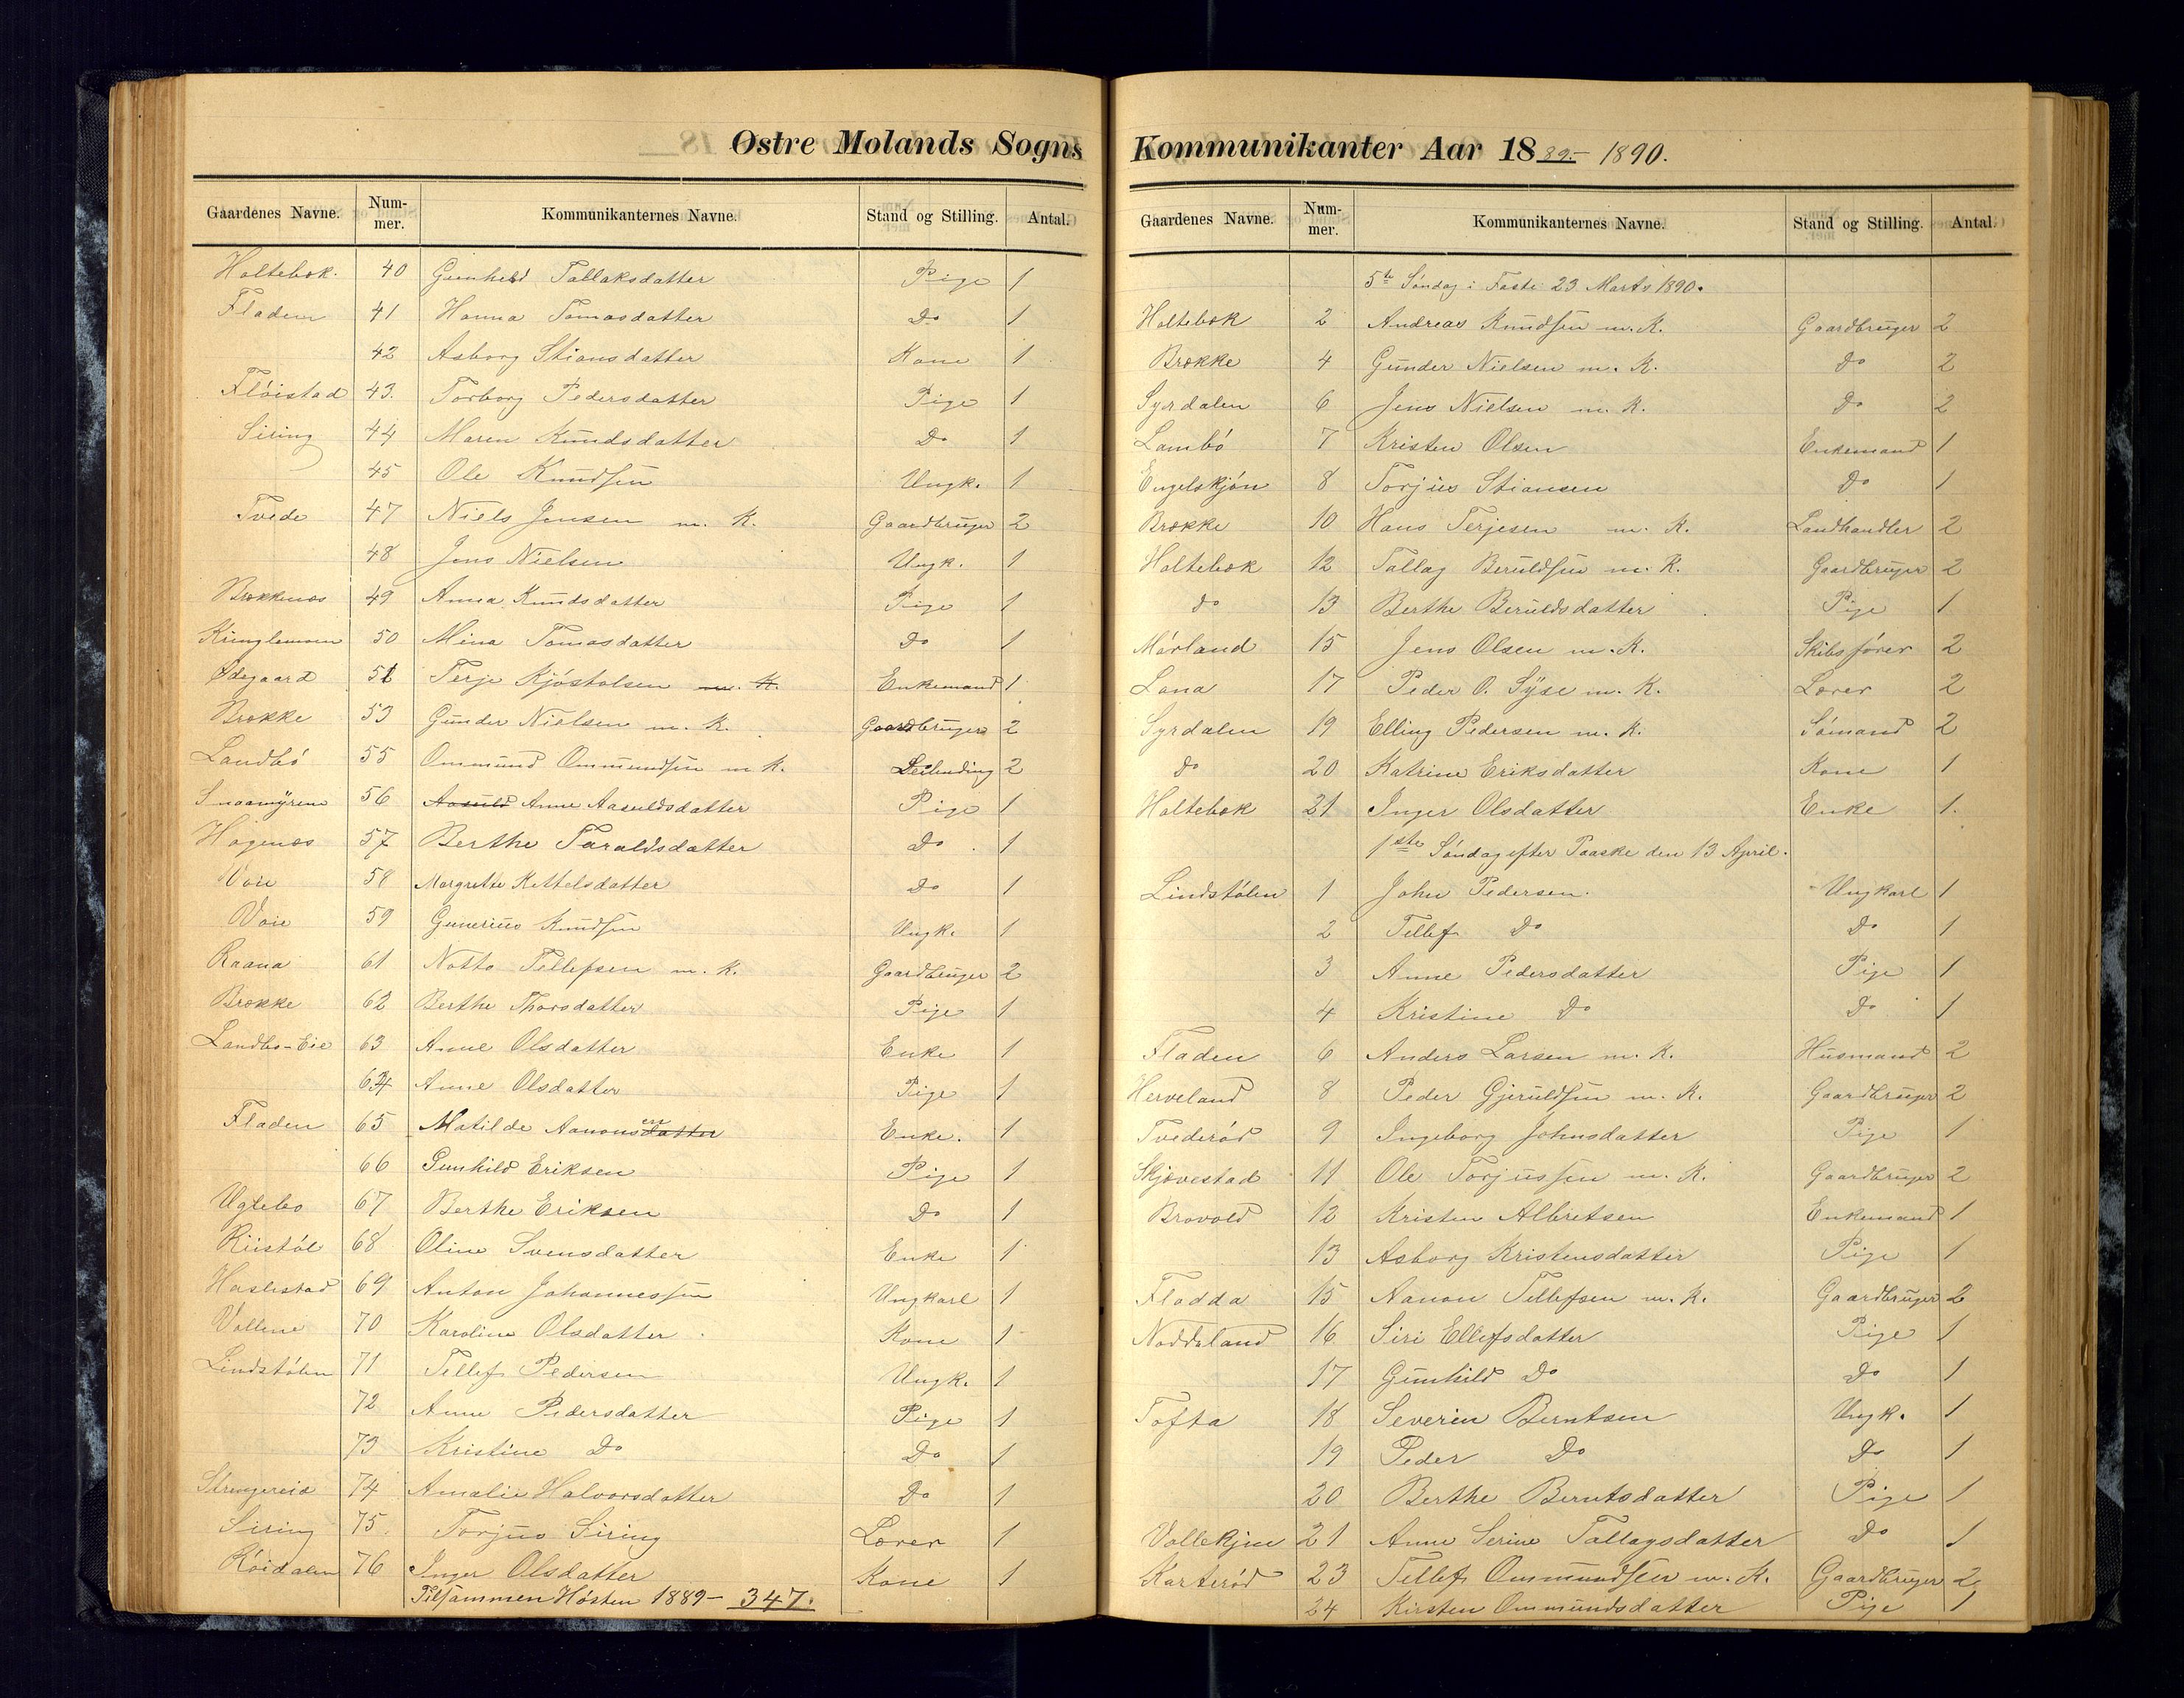 Østre Molands Sogns
Gaardenes Navne. Nummer. Kommunikanternes Navne. Stand og Stilling. Antal.
Holtebek. 40 Gunheld Tallaksdatter Pige 1
Fladen 41 Hanna Tomasdatter Do 1
42 Asborg Stiansdatter Kone 1
Flöistad 43. Torborg Pedersdatter Pige 1
Siring 44 Maren Knudsdatter Do 1
45 Ole Knudsen Ungk. 1
Tvede 47 Niels Jensen m. K. Gaardbruger 2
48 Jens Nielsen Ungk. 1
Brækkenæs 49 Anna Knudsdatter Pige 1
Kringlemoen 50 Mina Tomasdatter Do 1
Ødegaard 51 Terje Kjöstolsen m. K. Enkemand 1
Brække 53 Gunder Nielsen m. K. Gaardbruger 2
Landbö 55 Ommund Ommundsen m K. Leilending 2
Snaamyrene 56 Aasuld Anne Aasuldsdatter Pige 1
Hagenæs 57 Berthe Taraldsdatter Do 1
Voie 58 Margrethe Kittelsdatter Do 1
Voie 59 Gunerius Knudsen Ungk. 1
Raana 61 Notto Tellefsen m. K. Gaardbruger 2
Brække 62 Berthe Thorsdatter Pije 1
Landbo-Eie 63 Anne Olsdatter Enke 1
64 Anne Olsdatter Pige 1
Fladen 65 Matilde Aanonsdatter en Enke. 1
66 Gunhild Eriksen Pije 1
Uglebo 67 Berthe Eriksen Do 1
Riistöl 68 Oline Svensdatter Enke 1
Haslestad 69 Anton Johannessen Ungkarl 1
Vollene 70 Karoline Olsdatter Kone 1
Lindstölen 71 Tellef Pedersen Ungk. 1
72 Anne Pedersdatter Pige 1
73 Kristine Do Do 1
Strengereid 74 Amalie Halvorsdatter Do 1
Siring 75. Torjus Siring Lærer 1
Röidalen 76 Inger Olsdatter Kone 1
Tilsammen Hösten 1889 - 347.
Kommunikanter Aar 18 89.- 1890.
Gaardenes Navne. Nummer. Kommunikanternes Navne. Stand og Stilling. Antal.
5te Söndag i Faste 23 Marts 1890.
Holtebek 2 Andreas Knudsen m. K. Gaardbruger 2
Brække 4 Gunder Nielsen m. K. Do 2
Syrdalen 6 Jens Nielsen m. K. Do 2
Lambö 7 Kristen Olsen Enkemand 1
Engelskjön 8 Torjus Stiansen Do 1
Brække 10 Hans Terjesen m. K. Landhandler 2
Holtebek 12 Tallag Beruldsen m. K. Gaardbruger 2
do 13 Berthe Beruldsdatter Pije 1
Mörland 15 Jens Olsen m. K. Skibsförer 2
Lona 17 Peder O. Syse m. K. Lærer 2
Syrdalen 19 Elling Pedersen m. K. Sömand 2
do 20 Katrine Eriksdatter Kone 1
Holtebek 21 Inger Olsdatter Enke 1.
1ste Söndag efter Paaske den 13 April.
Lindstölen 1 John Pedersen. Ungkarl 1
2 Tellef Do Do 1
3 Anne Pedersdatter Pije 1
4 Kristine Do Do 1
Fladen 6 Anders Larsen m. K. Husmand 2
Herveland 8 Peder Gjeruldsen m. K. Gaardbruger 2
Tvederöd 9 Ingeborg Johnsdatter Pije 1
Skjævestad 11 Ole Torjussen m. K. Gaardbruger 2
Brovold 12 Kristen Albretsen Enkemand 1
13 Asborg Kristensdatter Pije 1
Flodda 15 Aanon Tellefsen m. K. Gaardbruger 2
Noddeland 16 Siri Ellefsdatter Pige 1
17 Gunhild Do Do 1
Tofta 18 Severin Berntsen Ungk. 1
19 Peder Do Do 1
20 Berthe Berntsdatter Pige 1
Vollekjen 21 Anne Serine Tallagsdatter Do 1
Karteröd 23 Tellef Ommundsen m. K. Gaardbruger 2
24 Kirsten Ommundsdatter Pige 1